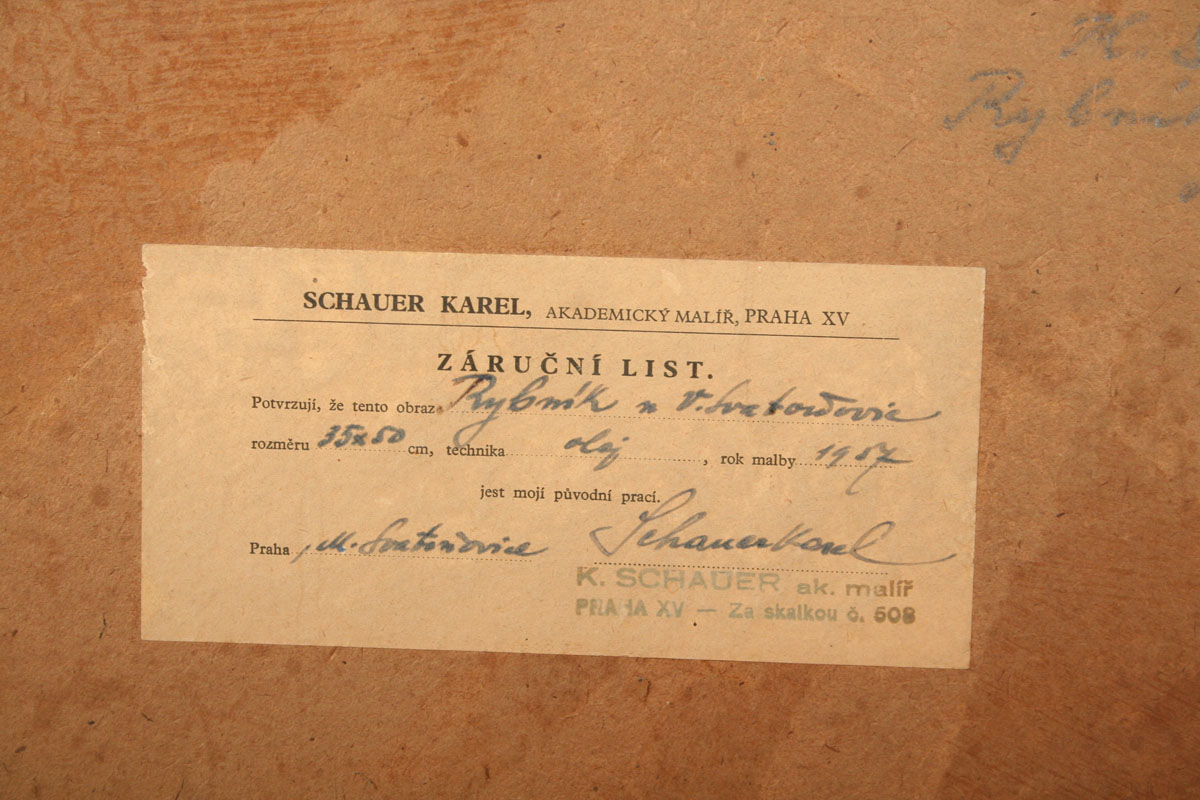 K.
Rybní
SCHAUER KAREL, AKADEMICKÝ MALÍŘ, PRAHA XV
ZÁRUČNÍ LIST.
Potvrzuji, že tento obraz Rybník u V. Svatoňovic
rozměru 35x50 cm, technika olej, rok malby 1957
jest mojí původní prací.
Praha, M. Svatoňovice Schauer Karel
K. SCHAUER ak. malíř
PRAHA XV — Za skalkou č. 508